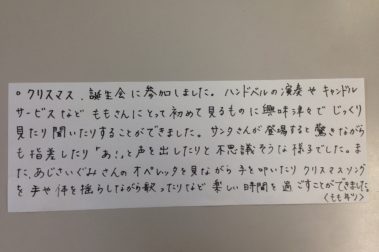 ○クリスマス、誕生会に参加しました。ハンドベルの演奏やキャンドル
サービスなどももさんにとって初めて見るものに興味津々でじっくり
見たり聞いたりすることができました。サンタさんが登場すると驚きながら
も指差したり「あ!」と声を出したりと不思議そうな様子でした。ま
た、あじさいぐみさんのオペレッタを見ながら手を叩いたりクリスマスソング
を手や体を揺らしながら歌ったりなど楽しい時間を過ごすことができました。